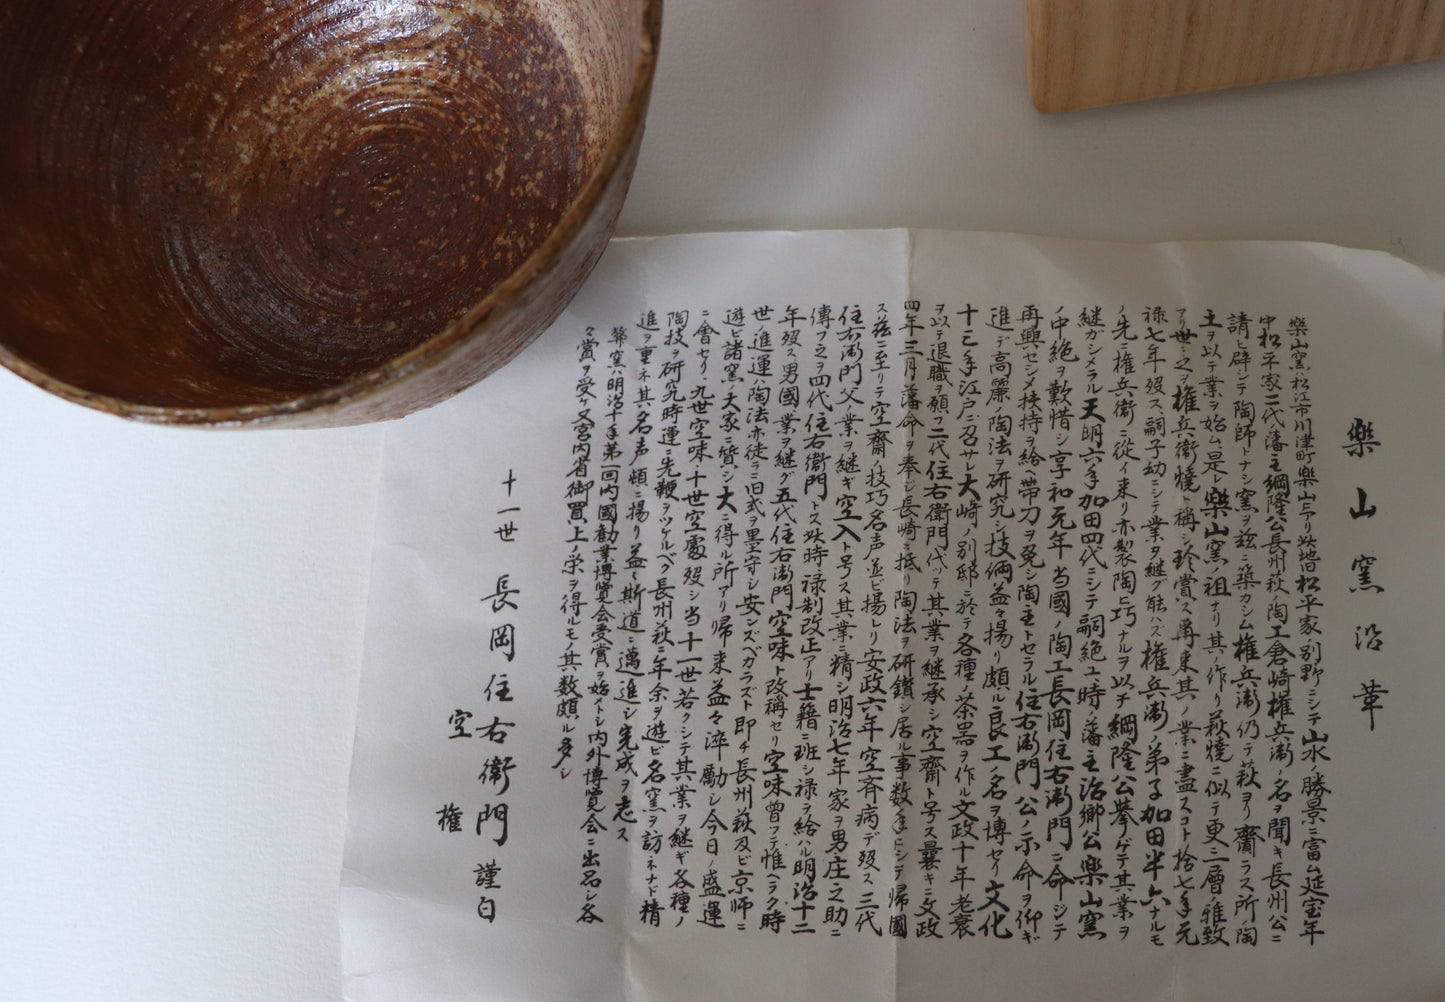 樂山窯沿革
樂山窯ハ松江市川津町樂山ニアリ此地旧松平家ノ別野ニシテ山水ノ勝景ニ富ム延宝年
中松平家二代藩主綱隆公長州萩ノ陶工倉崎権兵衞ノ名ヲ聞キ長州公ニ
請ヒ辟シテ陶師トナシ窯ヲ茲ニ築カシム権兵衞仍テ萩ヨリ齎ラス所ノ陶
土ヲ以テ業ヲ始ム是レ樂山窯ノ祖ナリ其ノ作リ萩燒ニ似テ更ニ一層ノ雅致
アリ世ニ之ヲ権兵衞燒ト稱シ珍賞ス爾来其ノ業ニ盡スコト拾七年元
禄七年歿ス嗣子幼ニシテ業ヲ継グ能ハズ権兵衞ノ弟子加田半六ナルモ
ノ先ニ権兵衞ニ従イ来リ亦製陶ニ巧ナルヲ以テ綱隆公挙ゲテ其業ヲ
継ガシメラル天明六年加田四代ニシテ嗣絶ユ時ノ藩主治郷公樂山窯
ノ中絶ヲ歎惜シ享和元年当國ノ陶工長岡住右衞門ニ命ジテ
再興セシメ扶持ヲ給ヘ帯刀ヲ免シ陶主トセラル住右衞門公ノ示命ヲ仰ギ
進デ高麗ノ陶法ヲ研究シ技倆益々揚リ頗ル良工ノ名ヲ博セリ文化
十三年江戸ニ召サレ大崎ノ別邸ニ於テ各種ノ茶器ヲ作ル文政十年老衰
ヲ以テ退職ヲ願フ二代住右衞門代ッテ其業ヲ継承シ空齋ト号ス曩キニ文政
四年三月藩命ヲ奉ジ長崎ニ抵リ陶法ヲ研鑽シ居ル事数年ニシテ帰國
ス茲ニ至リテ空齋ノ技巧名声並ビ揚レリ安政六年空斉病デ歿ス三代
住右衞門父ノ業ヲ継ギ空入ト号ス其業ニ精シ明治七年家ヲ男庄之助ニ
傳フ之ヲ四代住右衞門トス此時禄制改正アリ士籍ニ班シ禄ヲ給ハル明治十二
年歿ス男國ノ業ヲ継グ五代住右衞門空味ト改稱セリ空味曾ッテ惟ヘラク時
世ノ進運ハ陶法亦徒ラニ旧式ヲ墨守シ安ンズベカラズト即チ長州萩及ビ京師ニ
遊ビ諸窯ノ大家ニ質シ大ニ得ル所アリ帰来益々淬勵シ今日ノ盛運
ニ會セリ、九世空味、十世空處歿シ当十一世若クシテ其業ヲ継ギ各種ノ
陶技ヲ研究時運ニ先鞭ヲツケルベク長州萩ニ年余ヲ遊ビ名窯ヲ訪ネナド精
進ヲ重ネ其ノ名声頓ニ揚リ益々斯道ニ邁進シ完成ヲ志ス
弊窯ハ明治十年第一回内國勧業博覧会受賞ヲ始メトシ内外博覧会ニ出品シ各
々賞ヲ受ケ又宮内省御買上ノ栄ヲ得ルモノ其ノ数頗ル多シ
十一世 長岡住右衞門 謹白
空権